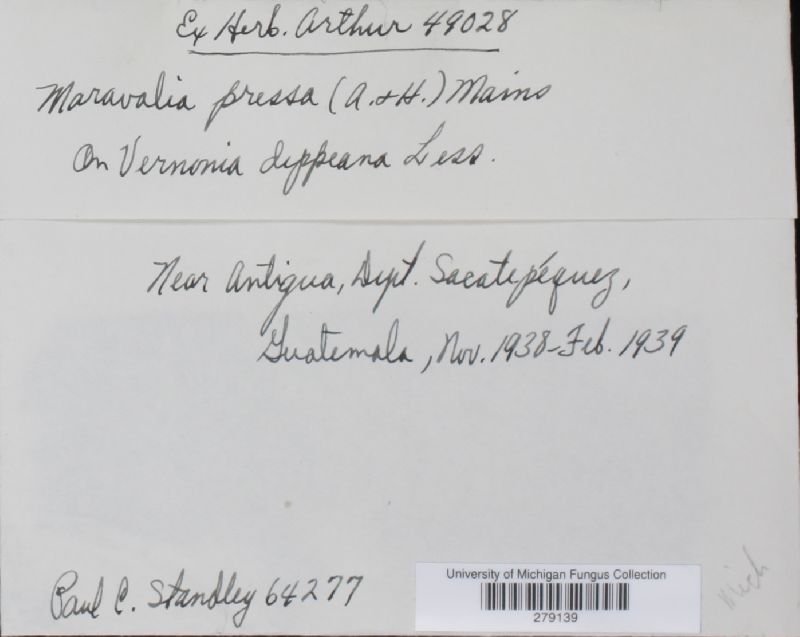 Ex Herb. Arthur 49028
Maravalia pressa (A. & H.) Mains
On Vernonia deppeana Less.
Near Antigua, Dept. Sacatepéquez,
Guatemala, Nov. 1938-Feb. 1939
Paul C. Standley 64277
University of Michigan Fungus Collection
279139
Mich